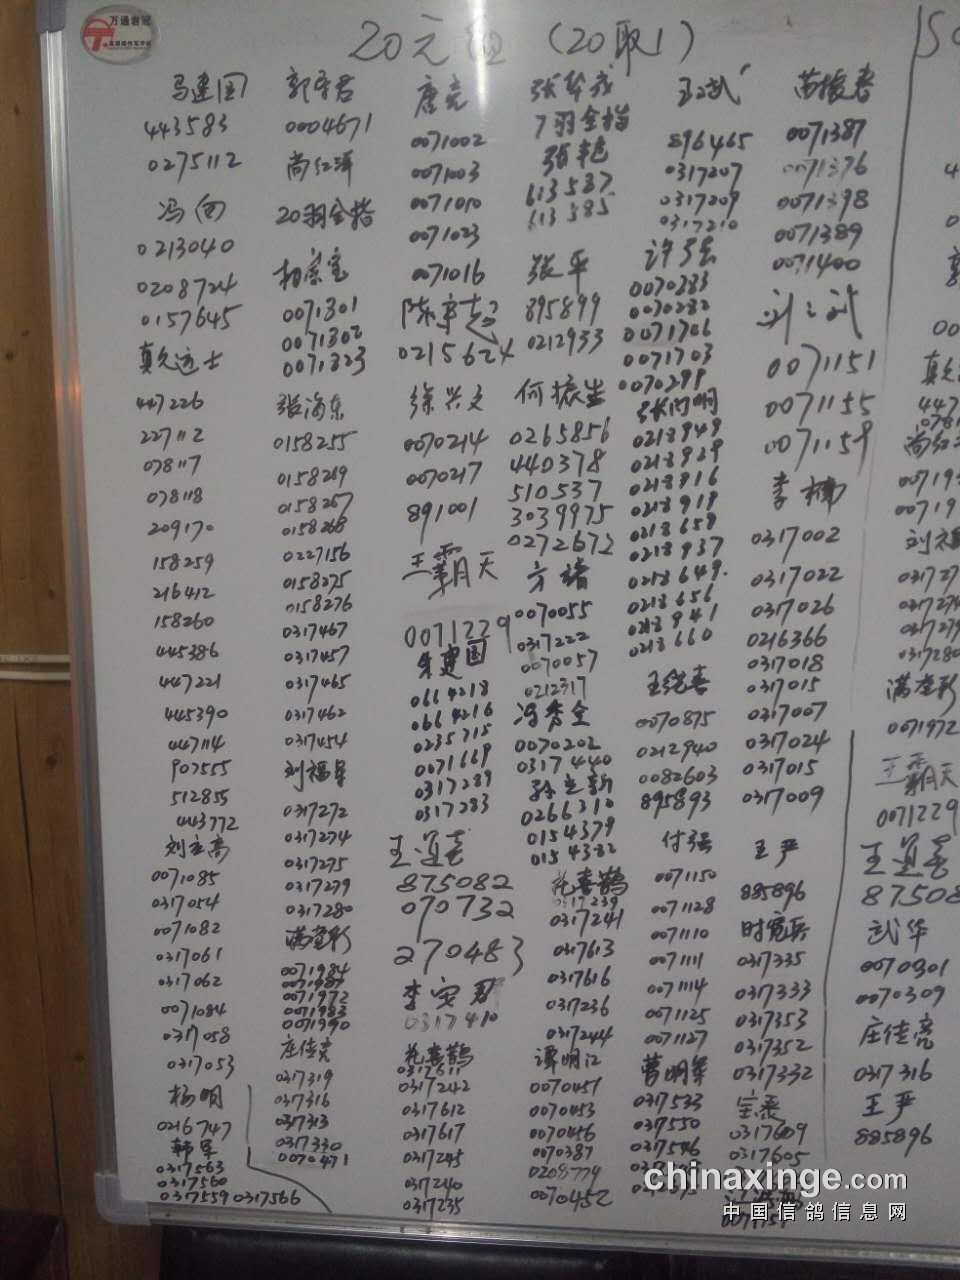 万通君冠
20元组 (20取1)
马建国
443583
0275112
0213040
0208724
0157645
447226
227112
078117
078118
209170
158259
216412
158260
445386
447221
445390
447114
907555
512855
443772
刘立高
0071085
0317054
0071082
0317061
0317062
0071084
0317058
0317053
杨明
0216747
韩军
0317563
0317560
0317559 0317566
郭守君
0004671
尚红洋
20羽全指
0071301
0071302
0071323
张海东
0158255
0158269
0158267
0158268
0227156
0158275
0158276
0317467
0317457
0317465
0317462
0317454
刘福军
0317272
0317274
0317275
0317279
0317280
0071984
0071987
0071972
0071983
0071990
庄佳亮
0317319
0317316
0317313
0317330
0070471
唐亮
0071002
0071003
0071010
0071023
0071016
0215624
徐兴文
0070214
0070217
891001
王霸天
0071229
朱建国
0664218
0664216
0235715
0071669
0317289
0317283
875082
070732
270483
0317410
花喜鹊
0317611
0317242
0317612
0317617
0317245
0317240
0317235
7羽全指
张艳
613587
613585
张平
895899
0212933
何振生
0265856
440378
510537
3039975
0272672
方靖
0070055
0317222
0070057
0212317
冯秀全
0070202
0317440
孙立新
0266310
0154379
0154382
花喜鹊
0317239
0317241
0317613
0317616
0317236
0317244
谭明江
0070451
0070453
0070456
0070387
0208779
0070452
896465
0317207
0317209
0317210
0070283
0070282
0071706
0071703
0070299
0218949
0218929
0218916
0218919
0218658
0218937
0218649
0218656
0218941
0218660
0070875
0212940
0082603
895893
付强
0071150
0071128
0071110
0071111
0071114
0071125
0071127
曹明军
0317533
0317550
0317546
苗振春
0071387
0071376
0071398
0071389
0071400
0071151
0071155
0071159
李楠
0317002
0317022
0317026
0216366
0317018
0317015
0317007
0317024
0317015
0317009
王严
885896
时宪兵
0317335
0317333
0317353
0317352
0317332
0317609
0317605
王霸天
0071229
87508
武华
0070301
0070309
庄佳亮
0317316
王严
885896
0071972
chinaxinge.com
中国信鸽信息网